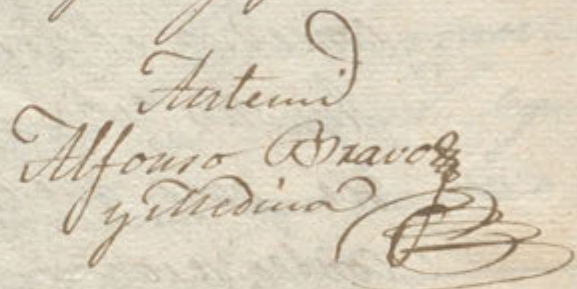 Antemi
Alfonso Bravo
y Medina